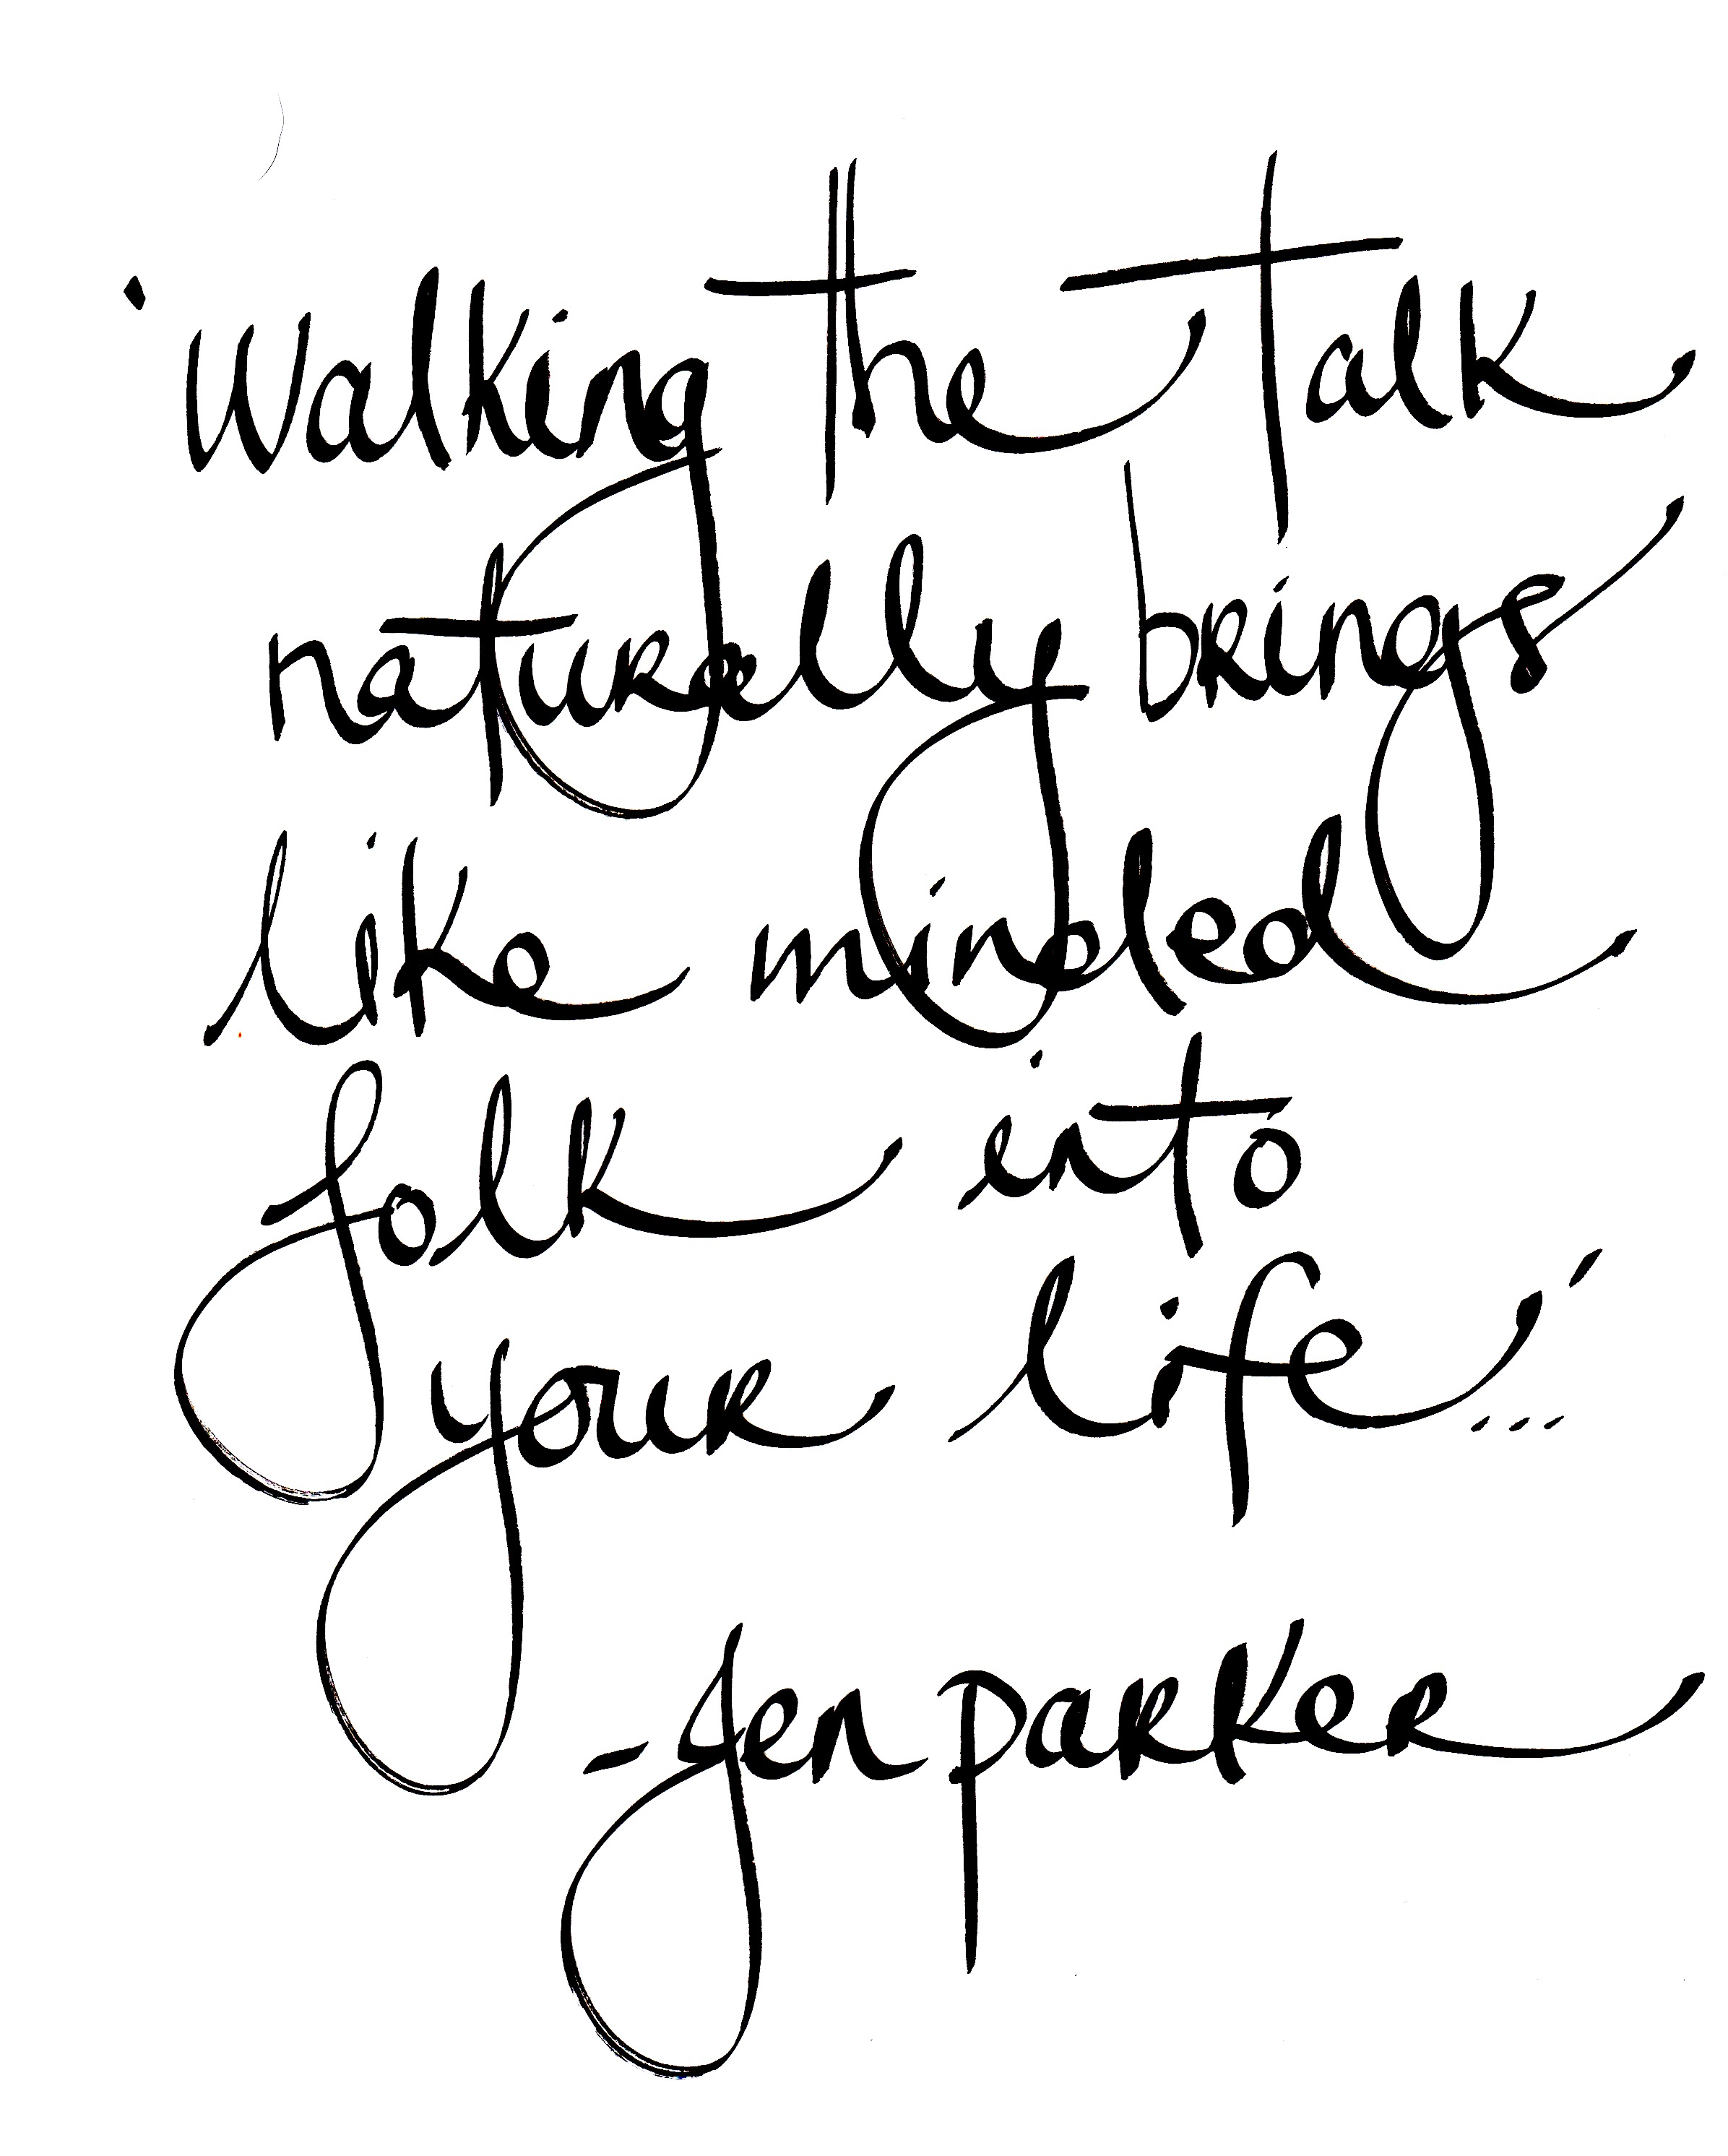 'Walking the talk
naturally brings
like minded
folk into
your life'...
-Jen parker